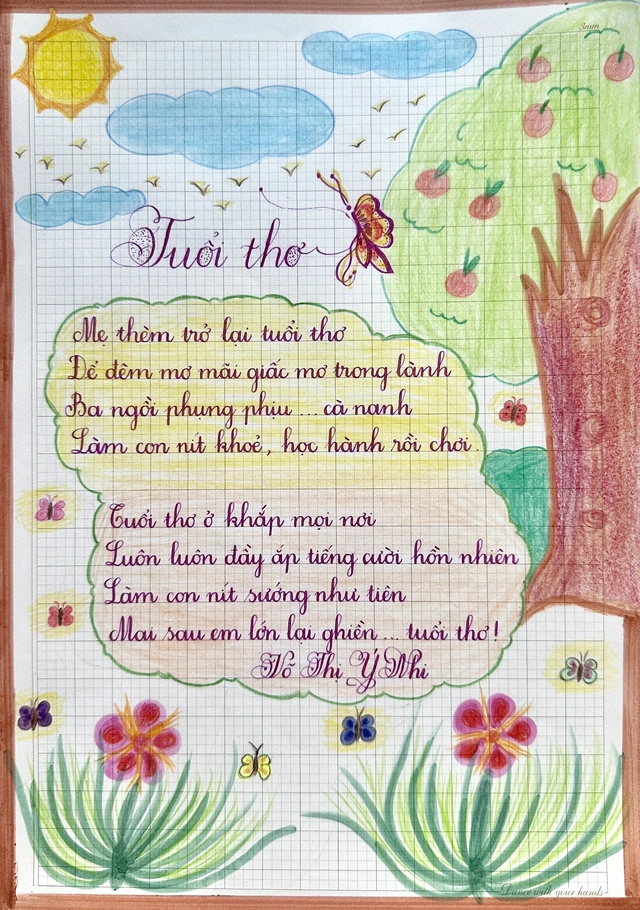 8mm
Tuổi thơ
Mẹ thèm trở lại tuổi thơ
Để đêm mơ mãi giấc mơ trong lành
Ba ngồi phụng phịu ... cà nanh
Làm con nít khoẻ, học hành rồi chơi.
Tuổi thơ ở khắp mọi nơi
Luôn luôn đầy ắp tiếng cười hồn nhiên
Làm con nít sướng như tiên
Mai sau em lớn lại ghiền ... tuổi thơ!
Võ Thị Ý Nhi
Dance with your hands